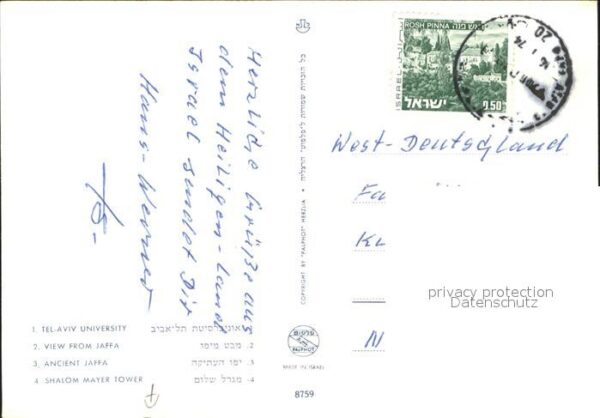 Herzliche Grüße aus
dem Heiligen-Land
Israel sendet Dir
Hans-Werner
1. TEL-AVIV UNIVERSITY
2. VIEW FROM JAFFA
3. ANCIENT JAFFA
4 SHALOM MAYER TOWER
אוניברסיטת תל-אביב
2. מבט מיפו
3. יפו העתיקה
4. מגדל שלום
כל הזכויות שמורות ל"פלפוט" הרצליה
COPYRIGHT BY "PALPHOT" HERZLIA
פלפוט
PALPHOT
MADE IN ISRAEL
8759
ROSH PINNA ראש פנה
ISRAEL
ישראל
0.50
20
74
West-Deutschland
Fa
Kl
N
privacy protection
Datenschutz